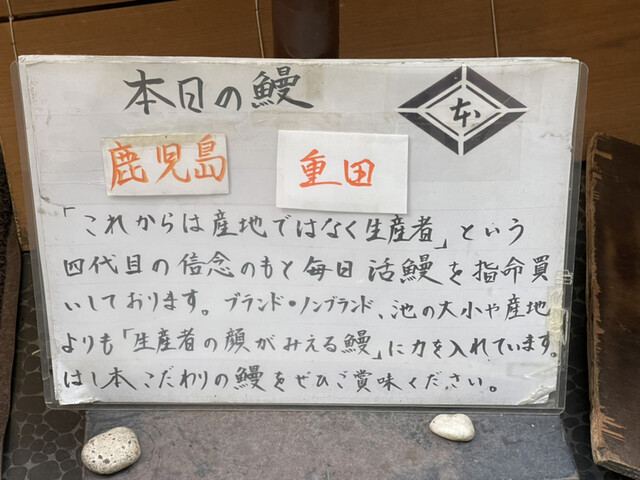 本日の鰻
本
鹿児島 重田
「これからは産地ではなく生産者」という
四代目の信念のもと毎日活鰻を指命買
いしております。ブランド・ノンブランド、池の大小や産地
よりも「生産者の顔がみえる鰻」に力を入れています。
はし本こだわりの鰻をぜひご賞味ください。